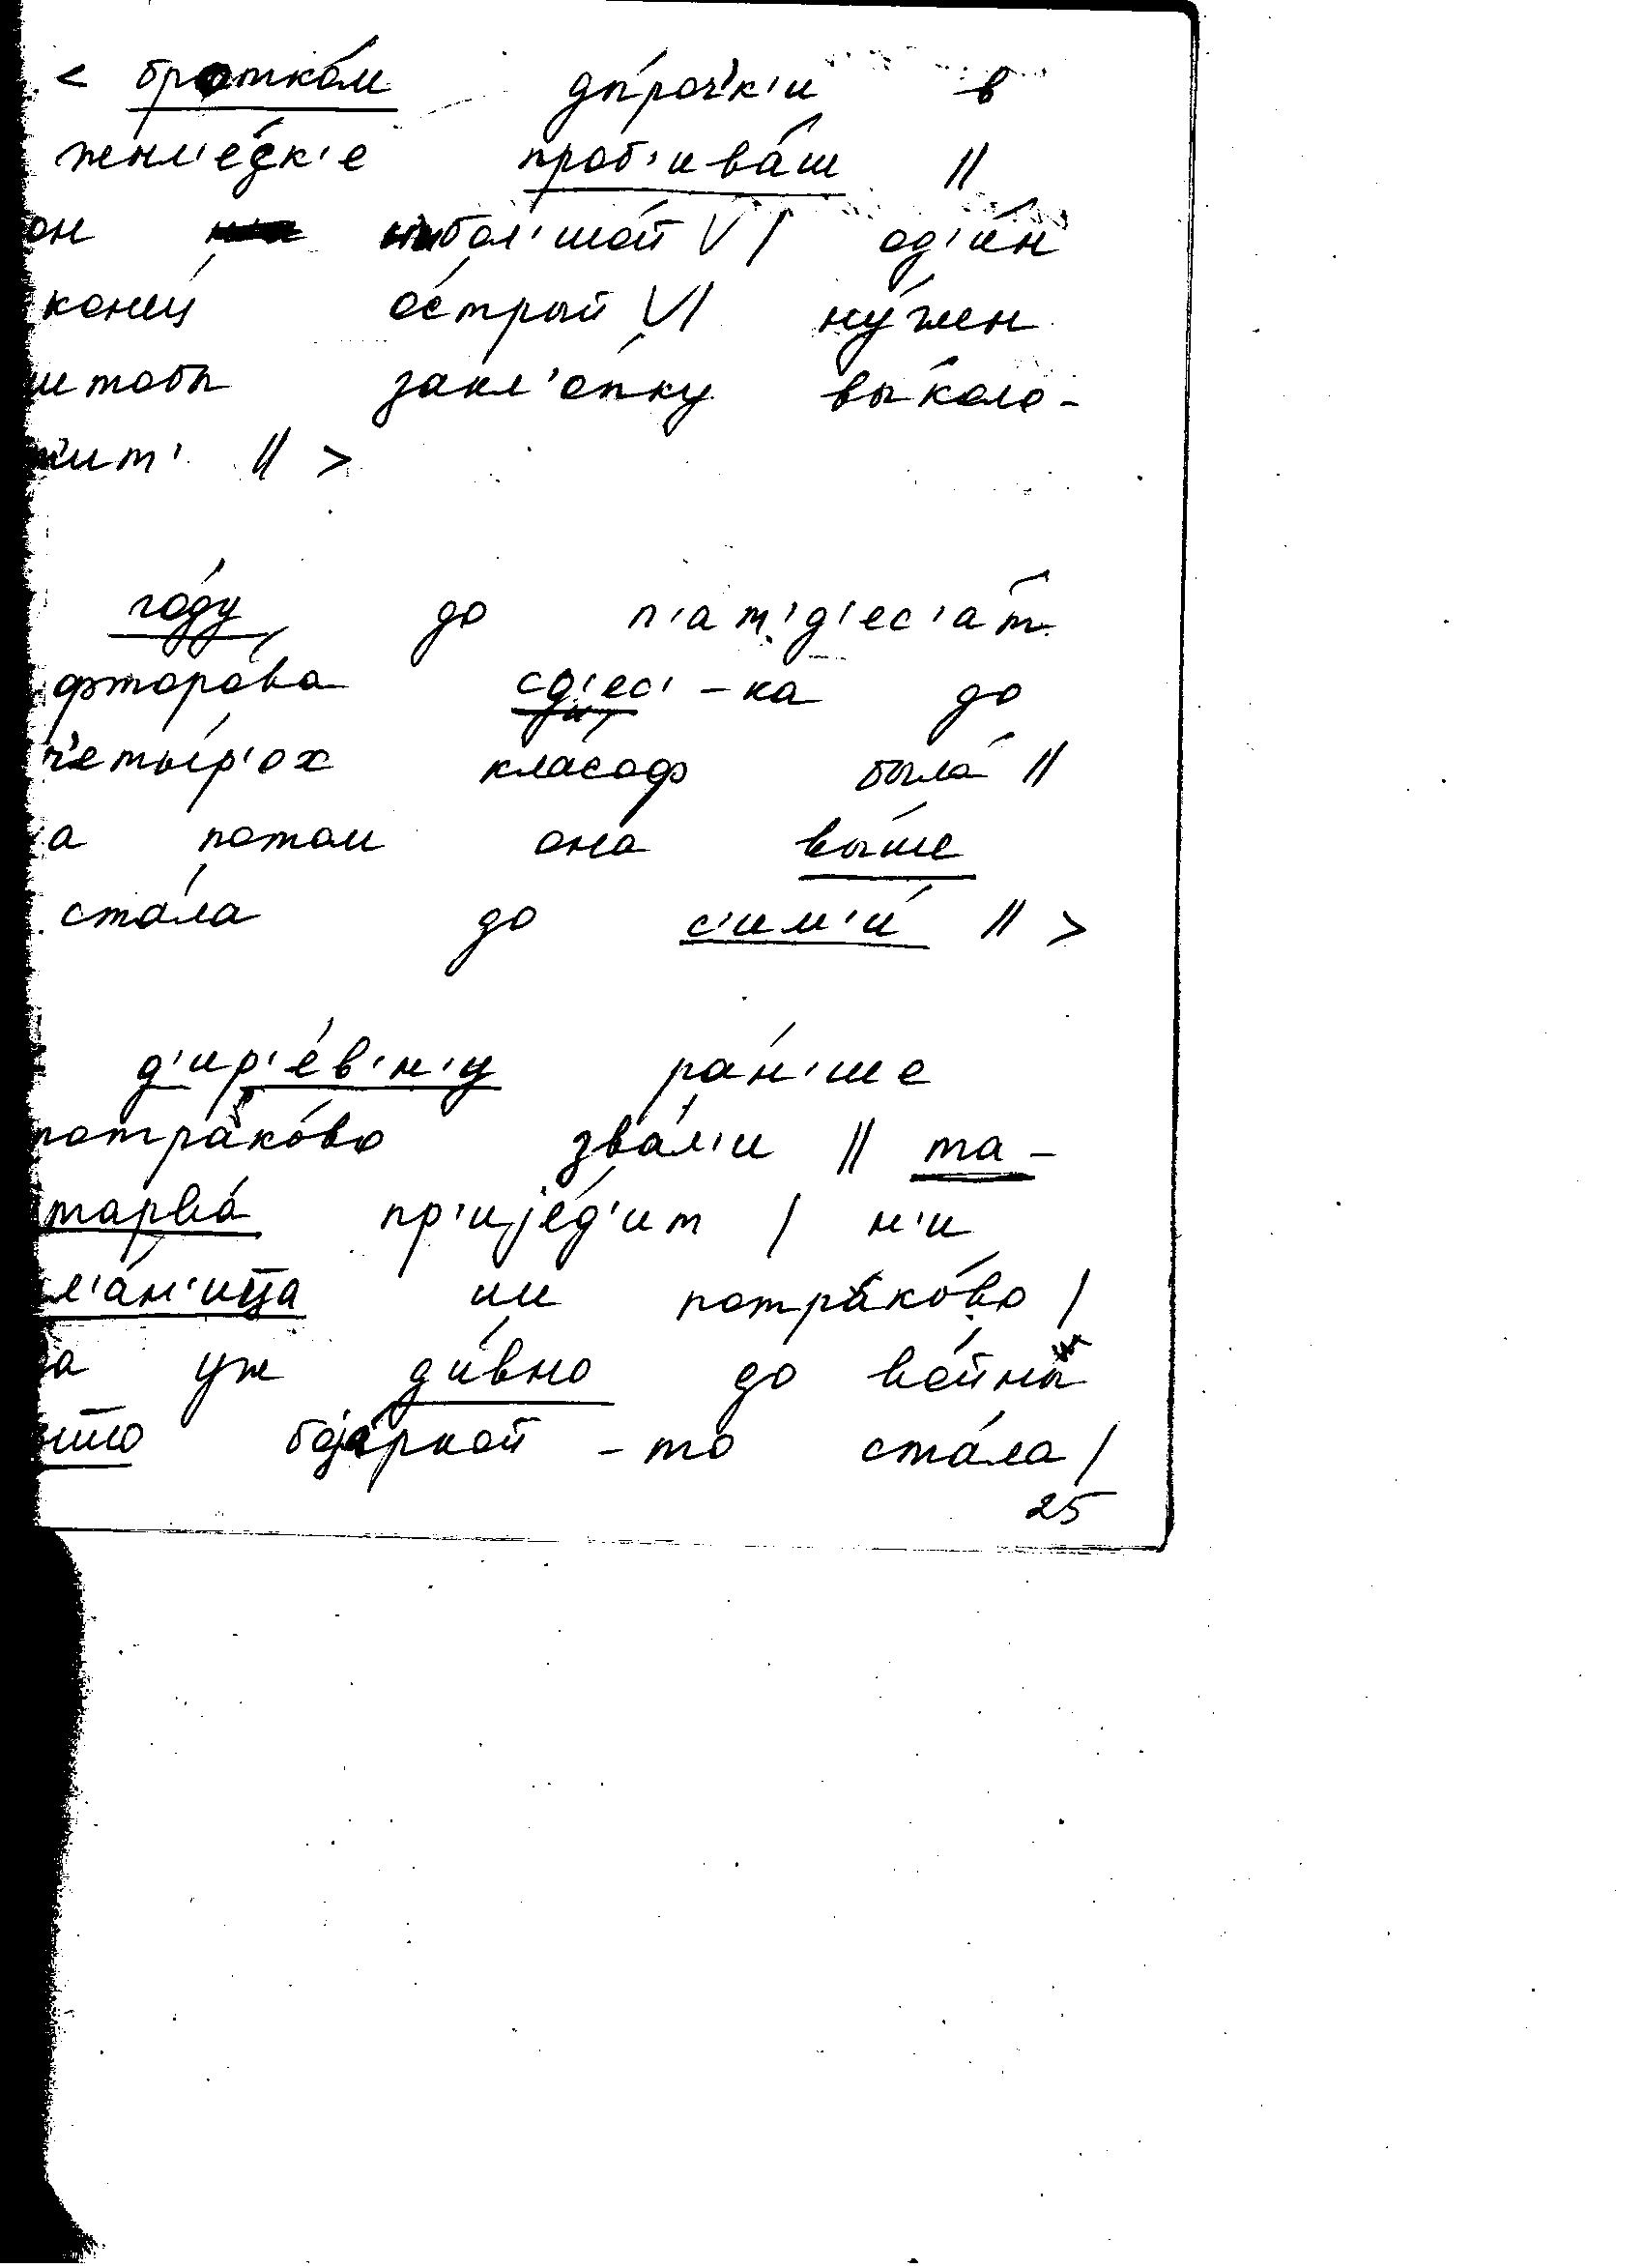 < бротко́м ды́роч'к'и в
жнл'е́зк'е проб'ива́ш //
он нибол'шо́й V / од'и́н
конец о́стрый V / ну́жен
штобы закл'о́пку вы́коло-
т'ит' // >
го́ду до п'ат'д'ес'а́т
фторо́ва сд'ес'-ка до
ч'еты́р'ох кла́соф была́ //
а пото́м она вы́ше
ста́ла до с'им'и́ // >
д'ир'е́в'н'у ра́н'ше
потрако́во зва́л'и // та-
тарва́ пр'ије́д'ит / н'и
л'а́н'ица им потрако́во /
а уж ди́вно до войны́
што боја́ркой -то ста́ла /
25